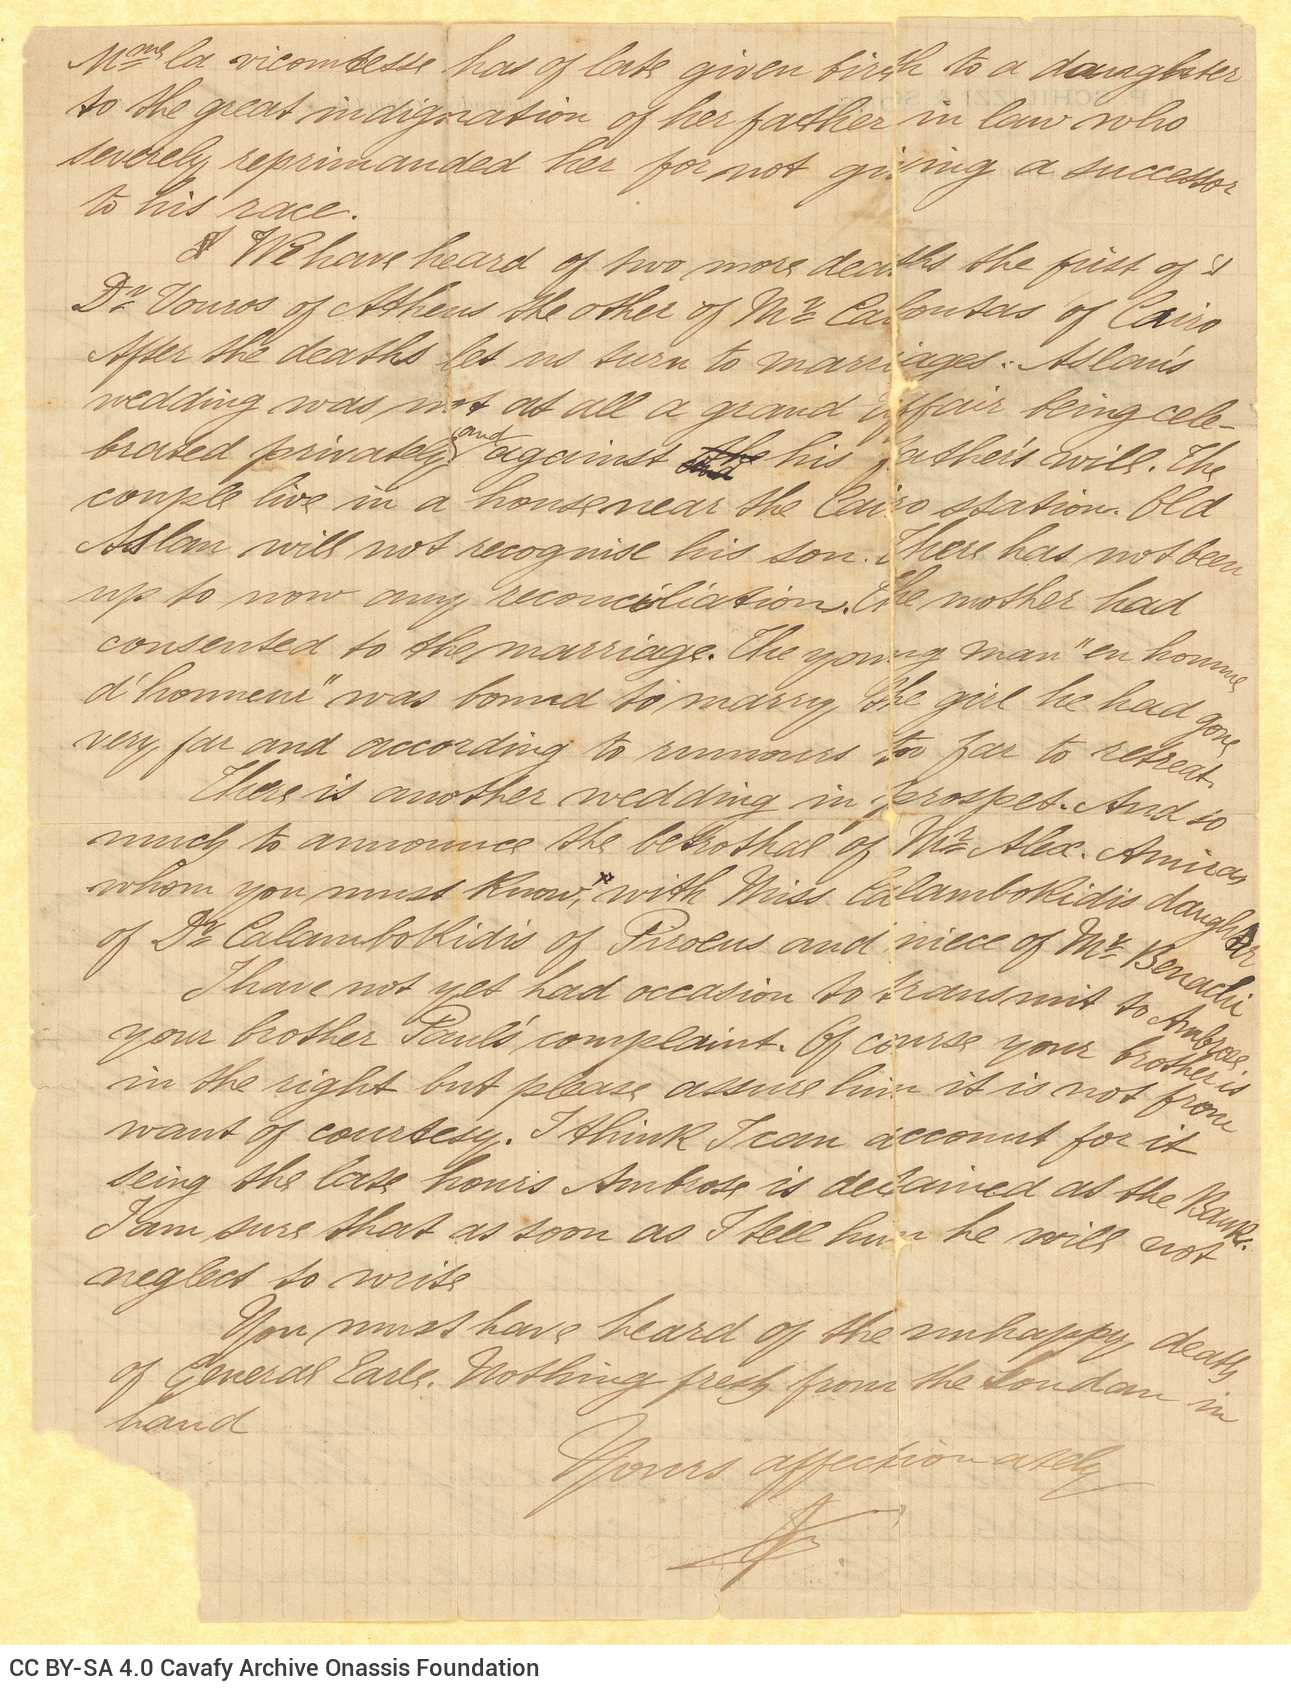 Mme la vicomtesse has of late given birth to a daughter
to the great indignation of her father in law who
severely reprimanded her for not giving a successor
to his race.
We have heard of two more deaths the first of
Dr Vouros of Athens the other of Mr Caloutas of Cairo
After the deaths let us turn to marriages: Aslan's
wedding was not at all a grand affair being cele-
brated privately and against the his father's will. The
couple live in a house near the Cairo station. Old
Aslan will not recognise his son. There has not been
up to now any reconciliation. The mother had
consented to the marriage. The young man "en homme
d'honneur" was bound to marry the girl he had gone
very far and according to rumours too far to retreat.
There is another wedding in prospet. And so
much to announce the betrothal of Mr Alex. Amiras
whom you must know, with Miss Calambokidis daughter
of Dr Calambokidis of Piroeus and niece of Mr Benachi
I have not yet had occasion to transmit to Ambrose
your brother Paul's complaint. Of course your brother is
in the right but please assure him it is not from
want of courtesy. I think I can account for it
being the late hours Ambrose is detained at the Bank.
I am sure that as soon as I tell him he will not
neglect to write
You must have heard of the unhappy death
of General Earle. Nothing fresh from the Soudan in
hand
Yours affectionately
CC BY-SA 4.0 Cavafy Archive Onassis Foundation